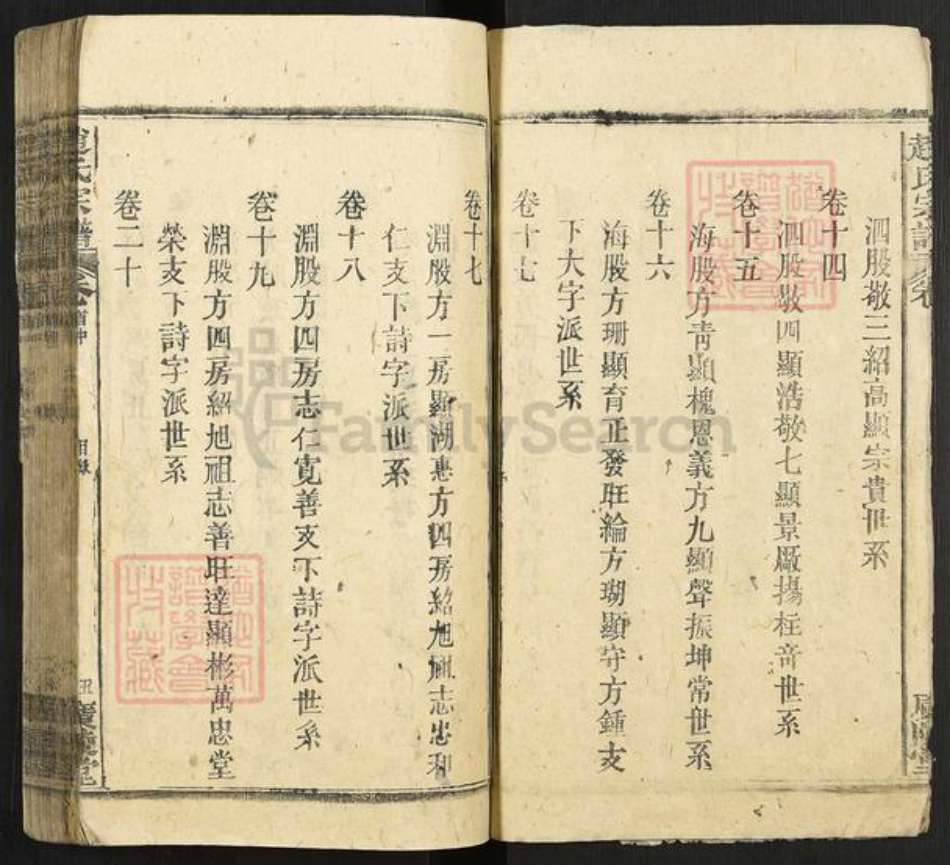 趙氏宗譜
卷
泗股敬三紹高顯宗貴世系
卷十四
泗股敬四顯浩敬七顯景廠揚枉竒世系
卷十五
海股方靑顯槐恩義方九顯聲振坤常世系
卷十六
海股方珊顯育正發旺綸方瑚顯守方鍾支
下大字派世系
卷十七
卷十七
淵股方一房顯湖惠方四房紹旭祖志忠和
仁支下詩字派世系
卷十八
淵股方四房志仁寛善支下詩字派世系
卷十九
淵股方四房紹旭祖志善旺達顯彬萬忠堂
榮支下詩字派世系
卷二十
趙氏宗譜
卷首中
目錄
廣德堂
FamilySearch